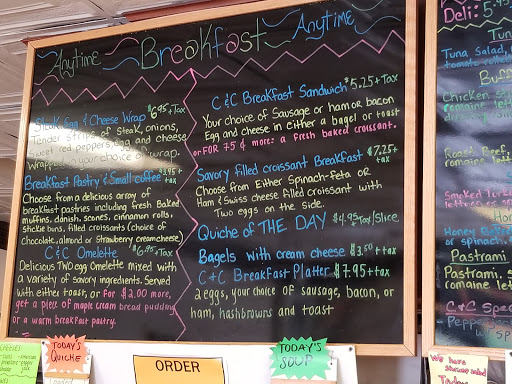 Anytime Breakfast Anytime
Steak, Egg & Cheese Wrap $6.95+Tax
Tender strips of steak, onions,
sweet red peppers, egg and cheese
Wrapped in your choice of wrap.
Breakfast Pastry & Small coffee $3.95+ tax
Choose from a delicious array of
breakfast pastries including fresh Baked
muffins, danish, scones, cinnamon rolls,
stickie buns, filled croissants (choice of
chocolate, almond or Strawberry creamcheese)
C & C Omelette $6.95+Tax
Delicious TWO egg Omelette mixed with
a variety of savory ingredients. Served
with either toast, or For $2.00 more,
get a piece of maple cream bread pudding
or a warm breakfast pastry.
C & C Breakfast Sandwich $5.25+Tax
Your choice of Sausage or ham or bacon
Egg and cheese in either a bagel or toast
or FOR 75¢ more: a fresh baked croissant.
Savory filled croissant Breakfast $7.25+ tax
Choose from Either Spinach-feta OR
Ham & Swiss cheese filled croissant with
Two eggs on the side.
Quiche of THE DAY $4.95+Tax/Slice
Bagels with cream cheese $3.50+tax
C+C Breakfast Platter $7.95+tax
2 eggs, your choice of sausage, bacon, or
ham, hashbrowns and toast
Deli: 5.95
Tuna
Tuna Salad,
Buff
Chicken
romaine lett
Roast Beef,
romaine lett
Smoked Turkey
lettuce
Ho
Honey Baked
or spinach.
Pastrami
Pastrami, s
romaine lett
C+C Spec
Pepper
TODAY'S
QUICHE
ORDER
TODAY'S
SOUP
We have